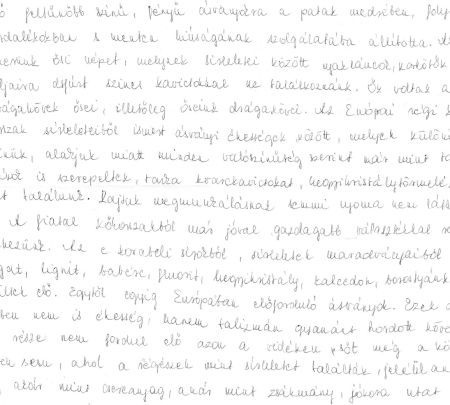 ő feltűnőbb színű, fényű ásványokra a patak medrében, foly
ordalékokban s mentén hiúságának szolgálatába állította. A
nemünk ősi népet, melynek sírleletei között nyakláncok, karkötők
díszített színes kavicsokkal ne találkoznánk. Ők voltak a
rágakövek ősei, illetőleg őseink drágakövei. Az Európai régi k
szak sírleleteiből ismert ásványi ékességek között, melyek külön
színük, alakjuk miatt minden valószínűség szerint már mint ta
is szerepeltek, tarka kvarckavicsokat, hegyikristálytörmelé
t találunk. Rajtuk megmunkálásnak semmi nyoma nem láts
A fiatal kőkorszakból már jóval gazdagabb választékkal
kezünk. Az e korabeli sírokból, sírleletek maradványaiból
lignit, fluorit, hegyikristály, kalcedon, borostyánk
ültek elő. Egytől egyig Európában előforduló ásványok. Ezek
ben nem is ékesség, hanem talizmán gyanánt hordott köve
része nem fordul elő azon a vidéken, sőt még a kö
en sem, ahol a régészek mint sírleletet találták, feltétlen
, akár mint cserenyag, akár mint zsákmány, jókora utat